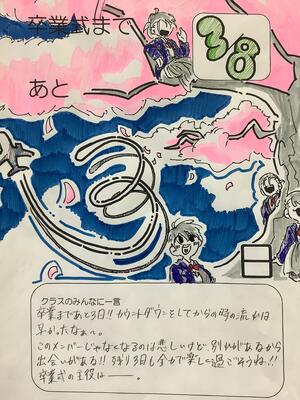 卒業式まで
38
あと
3
日
クラスのみんなに一言
卒業まであと3日!! カウントダウンをしてからの時の流れは
早かったなぁ〜。
このメンバーじゃなくなるのは悲しいけど、別れがあるから
出会いがある!! 残り3日も全力で楽しく過ごそうね!!
卒業式の主役は――。